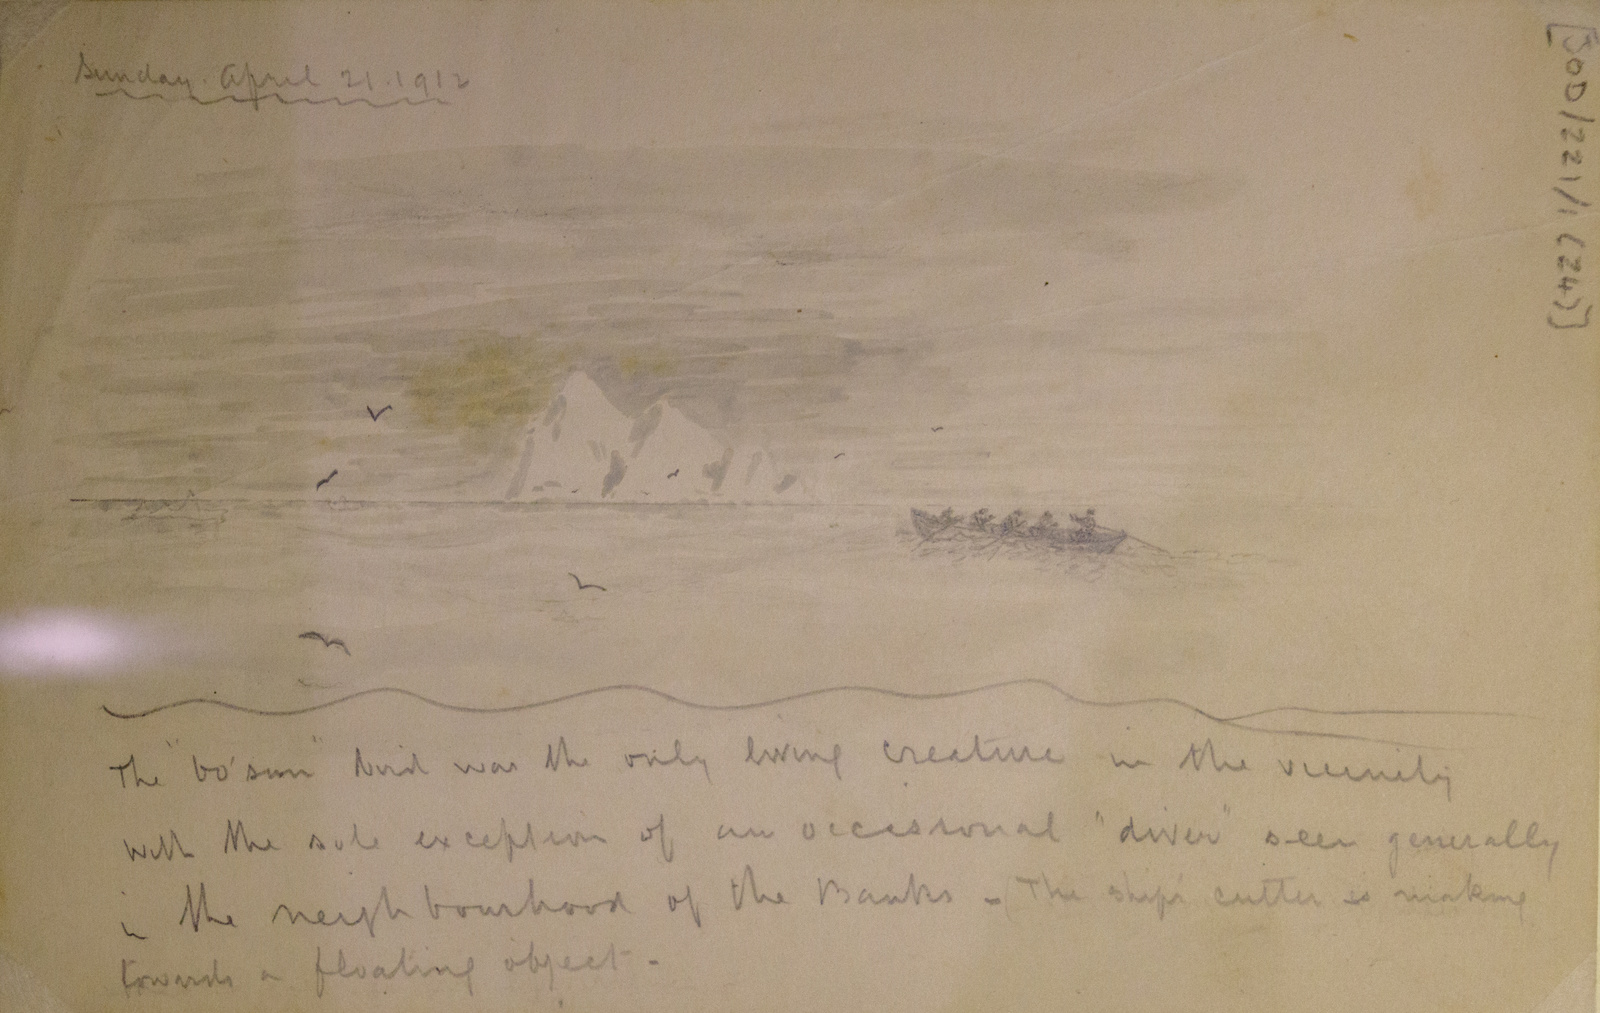 Sunday. April 21. 1912
[JOD/221/1 (24)]
The "bo'sun" bird was the only living creature in the vicinity
with the sole exception of an occasional "diver" seen generally
in the neighbourhood of the Banks - The ship's cutter is making
towards a floating object -